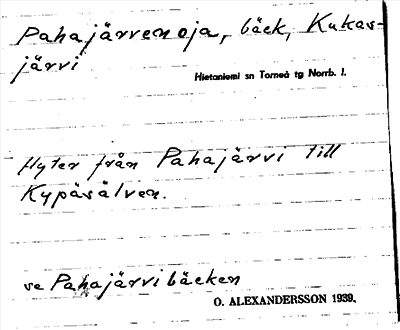 Pahajärvenoja, bäck, Kukas-
järvi
Hietaniemi sn Torneå tg Norrb. l.
Flyter från Pahajärvi till
Kypäsälven.
se Pahajärvibäcken
O. ALEXANDERSSON 1939.